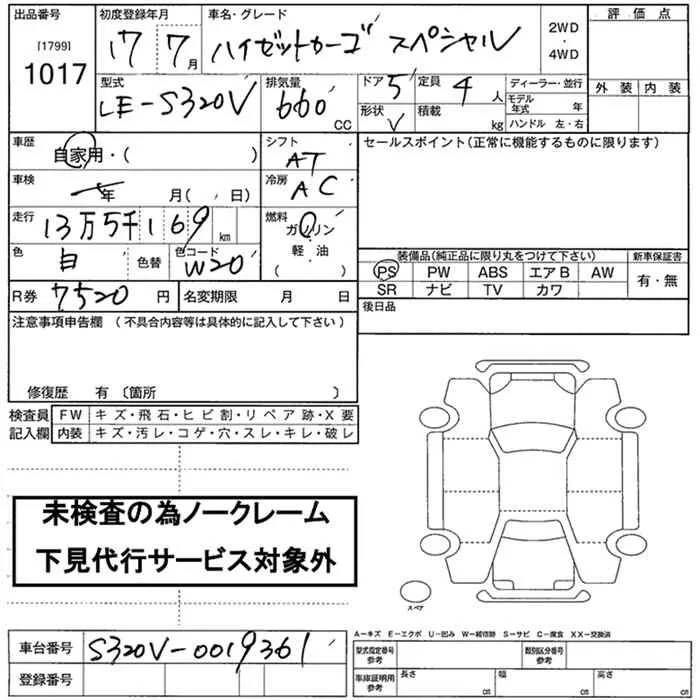 出品番号 [1799] 1017
初度登録年月 17 7月
車名・グレード ハイゼットカーゴ スペシャル
2WD・4WD
評価点
外装 内装
型式 LE-S320V
排気量 660 CC
ドア 5
形状 V
定員 4人
積載 kg
ディーラー・並行
モデル年式 年
ハンドル 左・右
車歴 自家用・( )
シフト AT
セールスポイント(正常に機能するものに限ります)
車検 年 月( 日)
冷房 AC
走行 13万5千169km
燃料 ガソリン 軽油 ( )
色 白 色替 色コード W20
装備品(純正品に限り丸をつけて下さい)
PS PW ABS エアB AW
SR ナビ TV カワ
新車保証書 有・無
R券 7520円
名変期限 月 日
後日品
注意事項申告欄 (不具合内容等は具体的に記入して下さい)
修復歴 有 〔箇所 〕
検査員記入欄
FW キズ・飛石・ヒビ割・リペア跡・X要
内装 キズ・汚レ・コゲ・穴・スレ・キレ・破レ
未検査の為ノークレーム
下見代行サービス対象外
スペア
A-キズ E-エクボ U-凹み W-補修跡 S-サビ C-腐食 XX-交換済
車台番号 S320V-0019361
登録番号
型式指定番号 参考
類別区分番号 参考
車庫証明用 参考
長さ cm 幅 cm 高さ cm